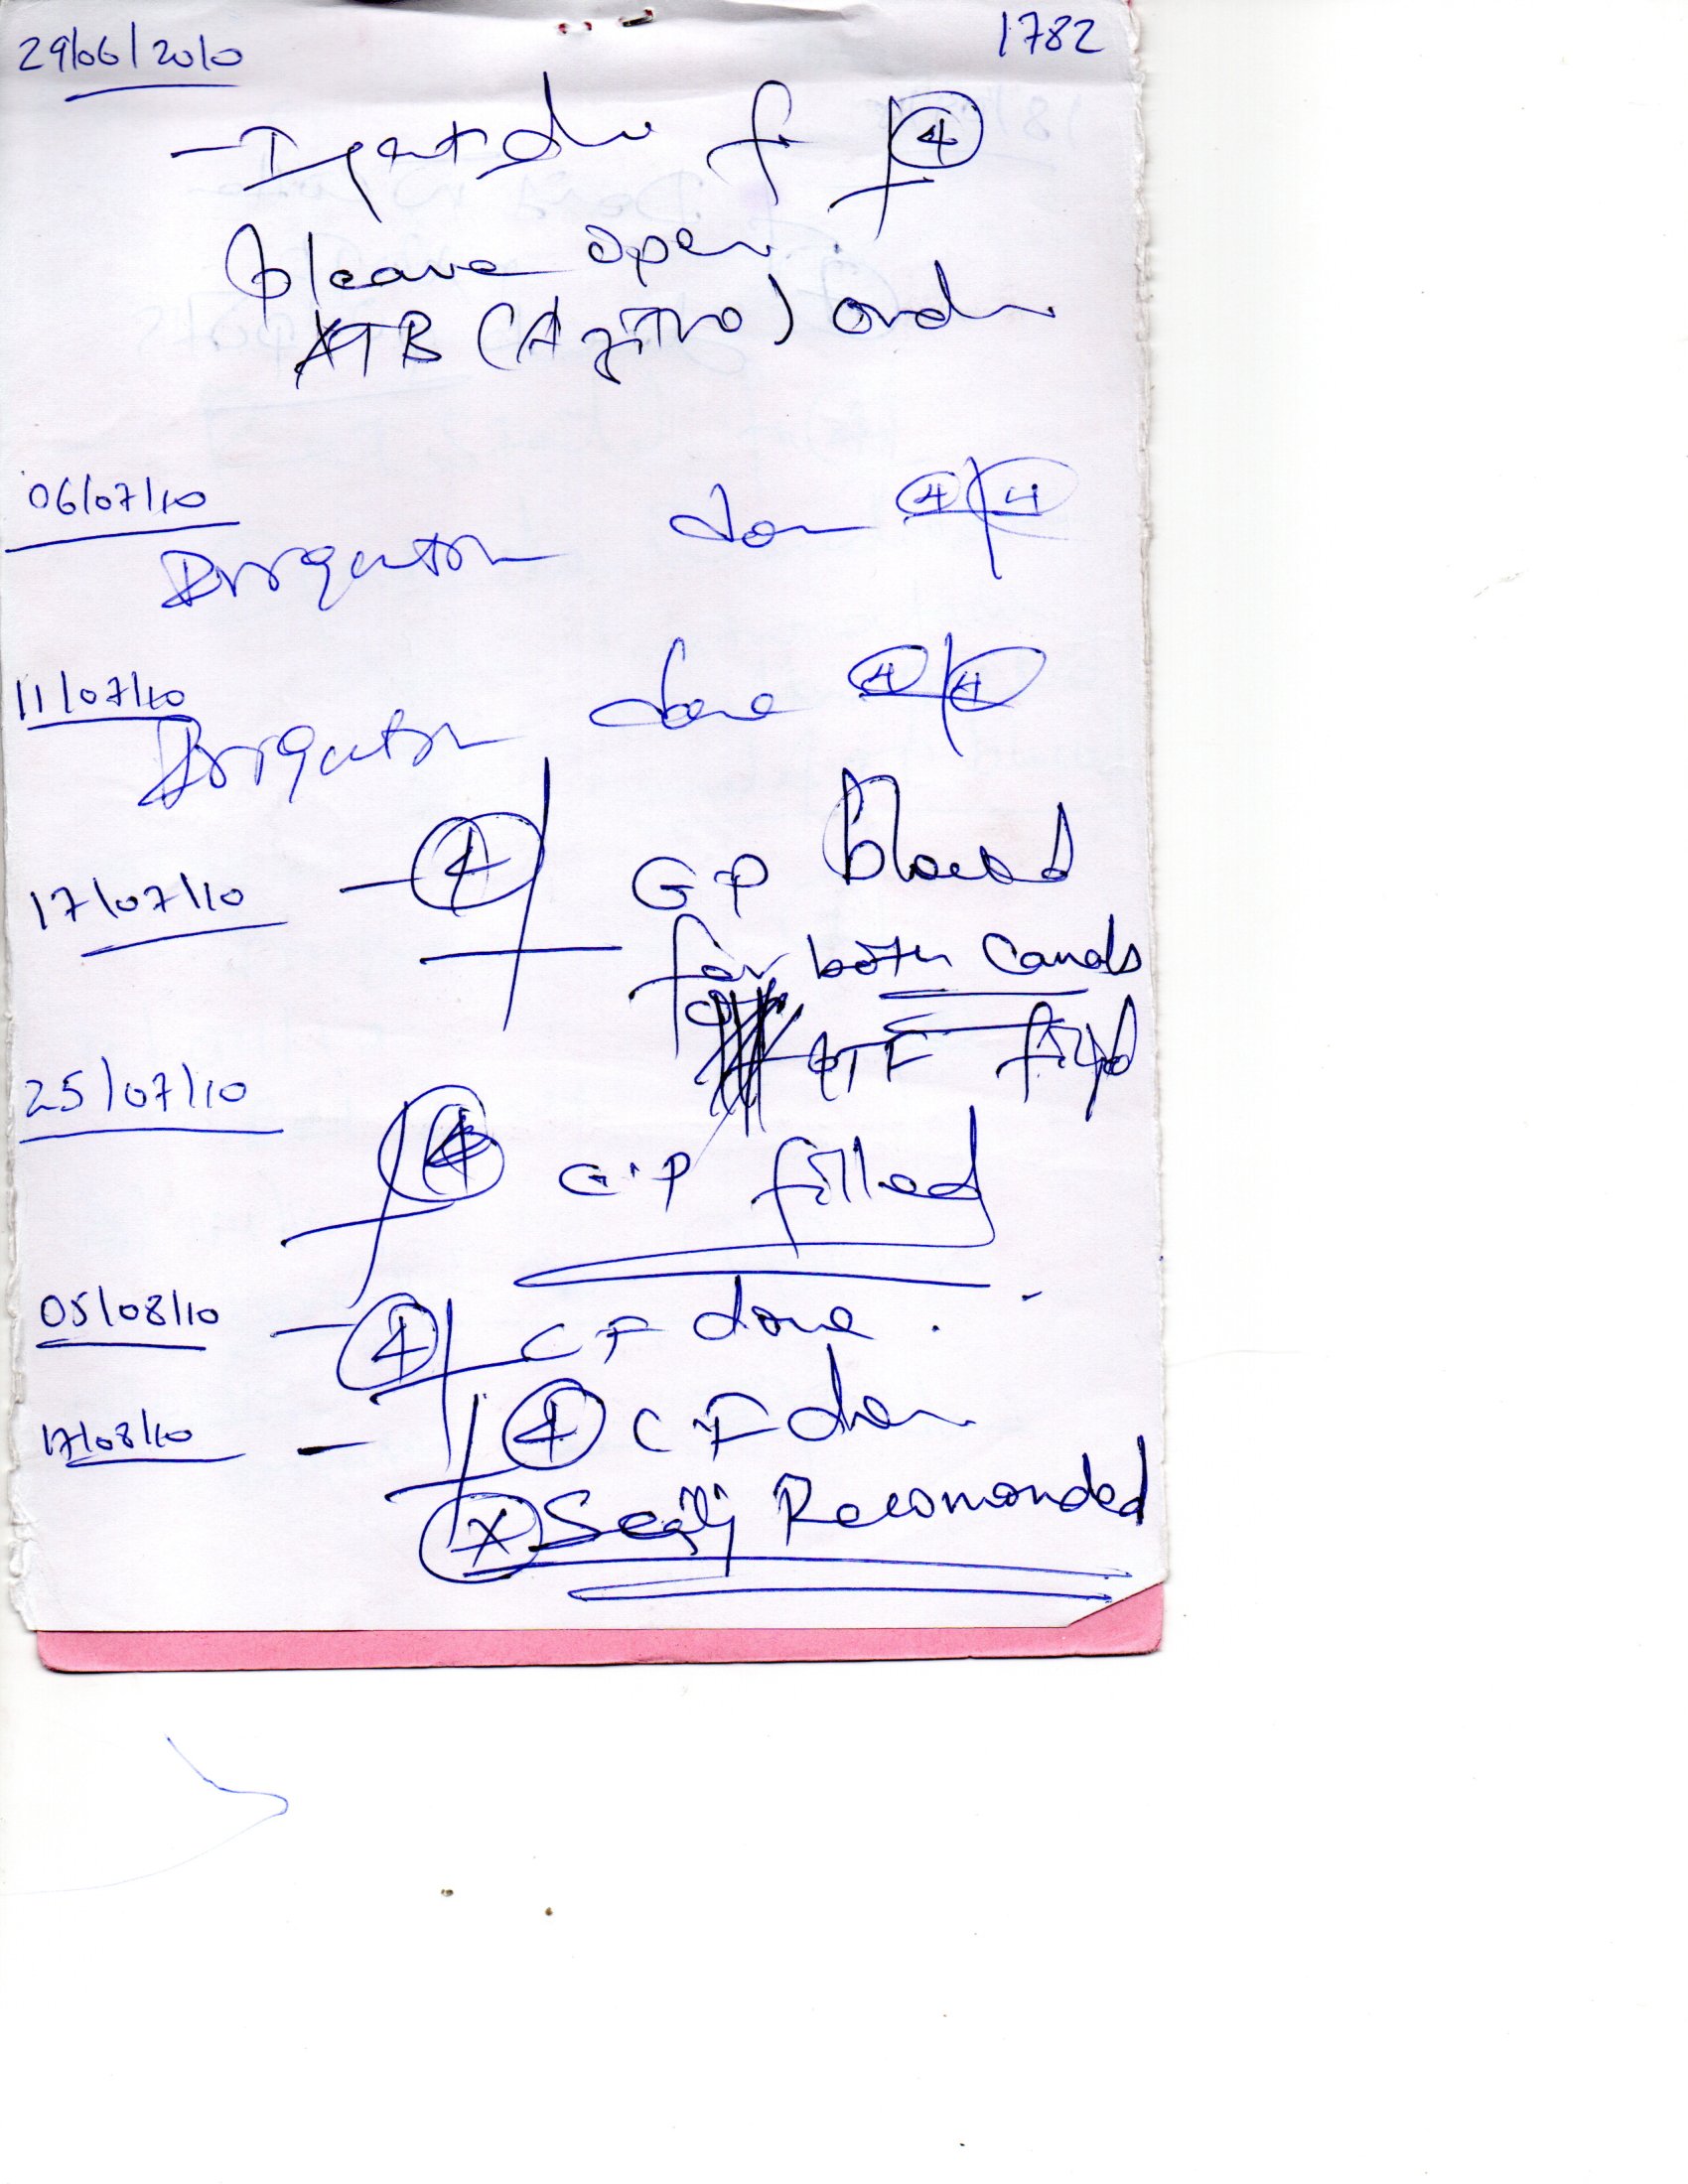 29/06/2010 1782
④
leave open
ATB (Azitro)
06/07/10
Irrigation done ④ ④
11/07/10
Irrigation done ④ ④
17/07/10 - ④ GP placed
for both canals
TF
25/07/10
④ G.P filled
05/08/10 - ④ CF done.
17/08/10 - ④ CF done
Ⓧ Recomonded